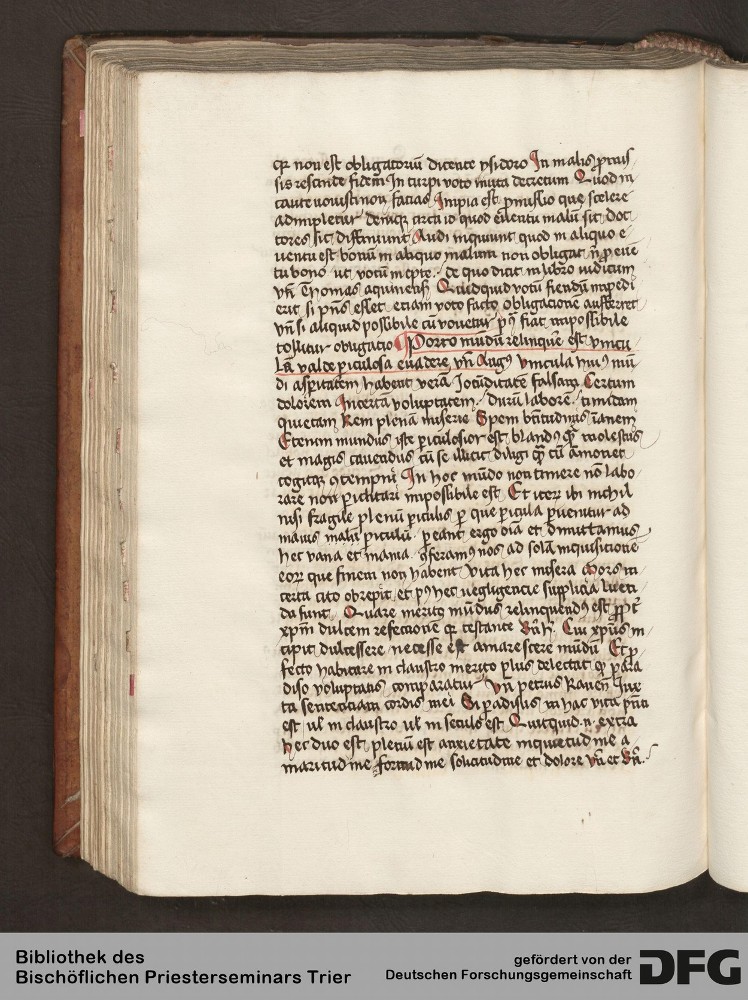 qr non est obligatoriū dicente ysidoro In malis ꝓmis
sis rescinde fidem In turpi voto muta decretum Quod in
caute vouisti non facias Impia est ꝓmissio que scelere
adimpletur denique circa id quod euentu malū sit doc
tores sic diffiniunt Audi inquiunt quod in aliquo e
uentu est bonū in aliquo malum non obligat n̄ ꝓ euē
tu bono ut votū
vn̄ Thomas aquinensis Quidquid votū fiendū impedi
erit si pn̄s esset etiam voto facto obligacionē aufferret
vn̄ si aliquid possibile cū vouetur pꝰ fiat impossibile
tollitur obligatio Porro mūdū relinque est vincu
la valde ꝑiculosa euadere vn̄ Augꝰ vincula huiꝰ mū
di aspitatem habent verā Jocūditatē falsam Certum
dolorem Incertā voluptatem durū laborē timidam
quietam Rem plenā miserie Spem btītudinis īanem
Etenim mundus iste ꝑiculosior est blandꝰ qꝫ molestus
et magis cauendus cū se illicit diligi qꝫ cū āmonet
cogitqꝫ ꝯtempni In hoc mūdo non timere nō labo
rare non ꝑiclitari impossibile est Et iteꝝ ibi nichil
nisi fragile plenū ꝑiculis ꝑ que ꝑicula ꝑuenitur ad
maius malū ꝑiculū ꝑeant ergo oīa et dimittamus
hec vana et inania ꝯferamꝰ nos ad solā inquisicionē
eoꝝ que finem non habent vita hec misera Mors in
certa cito obrepit et pꝰ hec negligencie supplicia luen
da sunt Quare merito mūdus relinquendꝰ est ꝓpt̄
xpm̄ dulcem refectionē qr testante Cui xpūs in
cipit dulcessere necesse est amarescere mūdū Et ꝓ
fecto habitare in claustro merito plus delectat qꝫ para
diso voluptatis comparatur Vn̄ petrus Raueñ Iux
ta sententiam cordis mei Si padisus in hac vita pn̄ti
est ul̄ in claustro ul̄ in seculo est Quicquid .n. extra
hec duo est plenū est anxietate inquietudine a
maritudine formidine solicitudine et dolore vn̄ et
Bibliothek des
Bischöflichen Priesterseminars Trier
gefördert von der
Deutschen Forschungsgemeinschaft
DFG